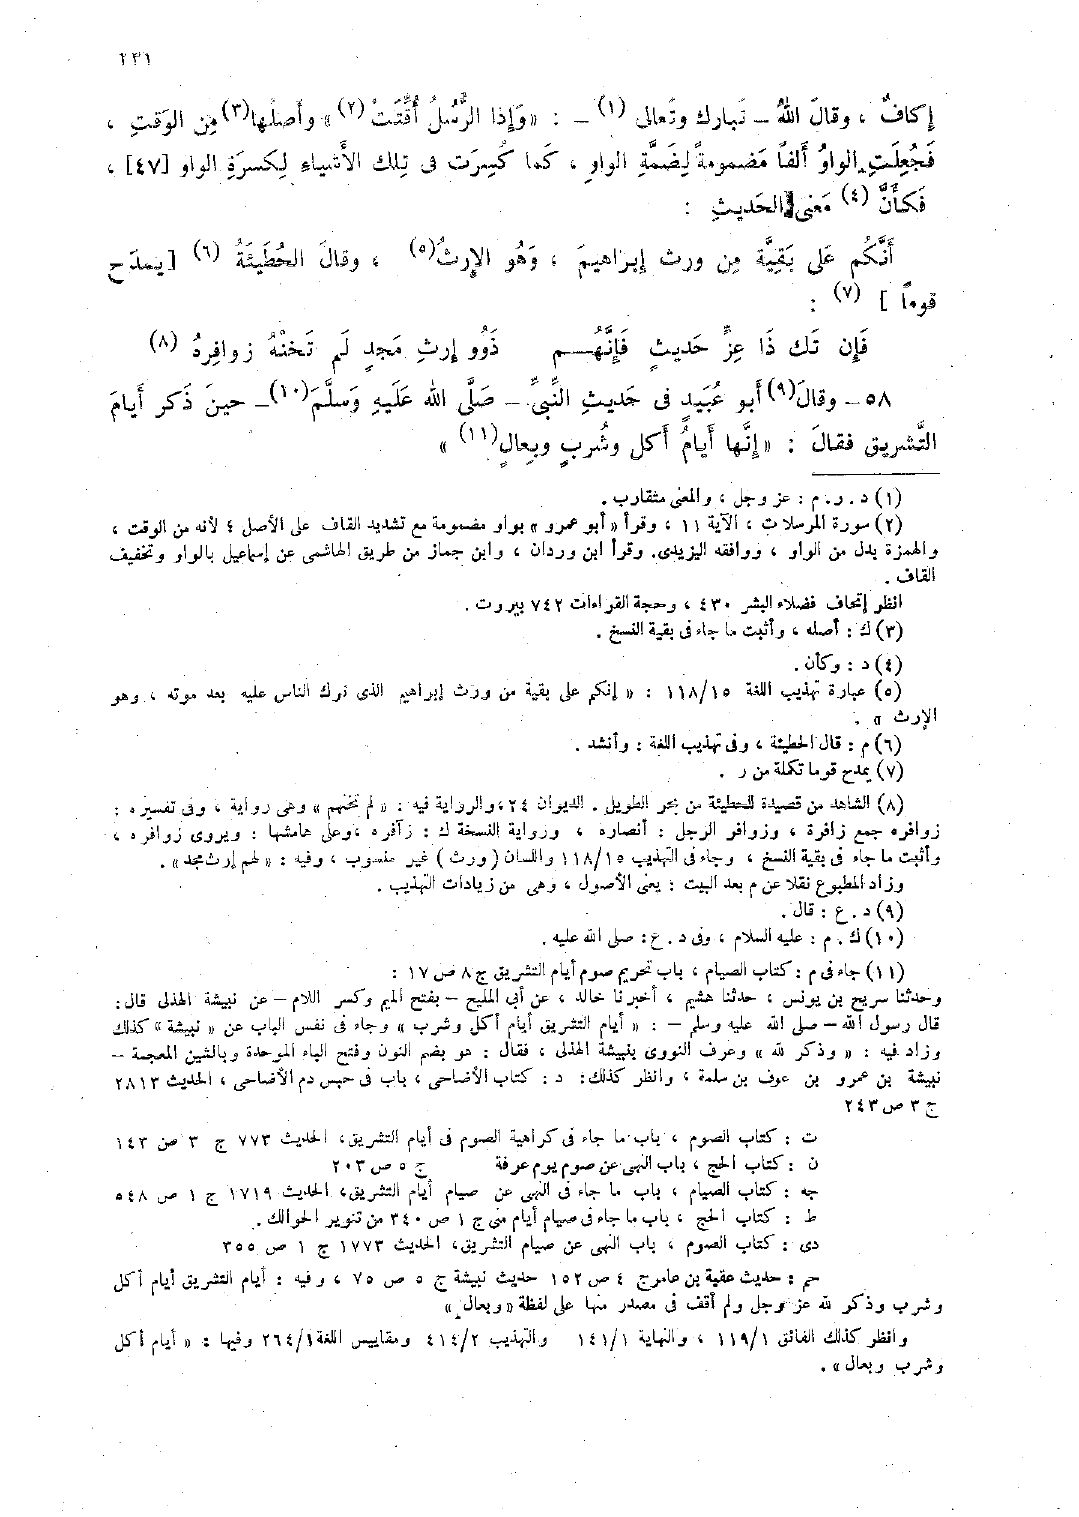 ٢٣١
إكافٌ ، وقالَ اللهُ – تَبارك وتَعالى (١) – : «وَإذا الرُّسُلُ أُقِّتَتْ (٢)» وأصلُها(٣) مِن الوَقتِ ،
فَجُعِلَتِ الواوُ ألفاً مَضمومةً لِضَمَّةِ الواوِ ، كَما كُسِرَت فى تِلك الأشياءِ لِكسرَةِ الواو [٤٧] ،
فَكأنَّ (٤) مَعنى الحَديثِ :
أنَّكُم عَلى بَقِيَّة مِن ورث إبراهيمَ ، وَهُو الإرثُ(٥) ، وقالَ الحُطَيئَةُ (٦) [ يمدَح
قوماً ] (٧) :
فَإن تَك ذَا عِزٍّ حَديثٍ فَإنَّهُــم ذَوُو إرثِ مَجدٍ لَم تَخنْهُ زوافِرهُ (٨)
٥٨ – وقالَ(٩) أبو عُبَيدٍ فى حَديثِ النَّبىِّ – صَلَّى الله عَلَيهِ وَسَلَّمَ(١٠) – حينَ ذَكر أيامَ
التَّشريق فقالَ : «إنَّها أيامُ أكل وشُربٍ وبِعالٍ(١١)»
(١) د . ر. م : عز وجل ، والمعنى متقارب .
(٢) سورة المرسلات ، الآية ١١ ، وقرأ «أبو عمرو» بواو مضمومة مع تشديد القاف على الأصل ؛ لأنه من الوقت ،
والهمزة بدل من الواو ، ووافقه اليزيدى. وقرأ ابن وردان ، وابن جماز من طريق الهاشمى عن إسماعيل بالواو وتخفيف
القاف .
انظر إتحاف فضلاء البشر ٤٣٠ ، وحجة القراءات ٧٤٢ بيروت .
(٣) ك : أصله ، وأثبت ما جاء فى بقية النسخ .
(٤) د : وكأن .
(٥) عبارة تهذيب اللغة ١١٨/١٥ : « إنكم على بقية من ورث إبراهيم الذى ترك الناس عليه بعد موته ، وهو
الإرث » .
(٦) م : قال الحطيئة ، وفى تهذيب اللغة : وأنشد .
(٧) يمدح قوما تكملة من ر .
(٨) الشاهد من قصيدة للحطيئة من بحر الطويل . الديوان ٢٤، والرواية فيه : «لم تخنهم» وهى رواية ، وفى تفسيره :
زوافره جمع زافرة ، وزوافر الرجل : أنصاره ، ورواية النسخة ك : زآفره ،وعلى هامشها : ويروى زوافره ،
وأثبت ما جاء فى بقية النسخ ، وجاء فى التهذيب ١١٨/١٥ واللسان (ورث) غير منسوب ، وفيه : «لهم إرث مجد» .
وزاد المطبوع نقلا عن م بعد البيت : يعنى الأصول ، وهى من زيادات التهذيب .
(٩) د . ع : قال .
(١٠) ك . م : عليه السلام ، وفى د . ع : صلى الله عليه .
(١١) جاء فى م : كتاب الصيام ، باب تحريم صوم أيام التشريق ج ٨ ص ١٧ :
وحدثنا سريج بن يونس ، حدثنا هشيم ، أخبرنا خالد ، عن أبي المليح – بفتح الميم وكسر اللام – عن نبيشة الهذلى قال :
قال رسول الله – صلى الله عليه وسلم – : « أيام التشريق أيام أكل وشرب » وجاء فى نفس الباب عن «نبيشة» كذلك
وزاد فيه : «وذكر لله» وعرف النووى بنبيشة الهذلى ، فقال : هو بضم النون وفتح الباء الموحدة وبالشين المعجمة –
نبيشة بن عمرو بن عوف بن سلمة ، وانظر كذلك : د : كتاب الأضاحى ، باب فى حبس دم الأضاحى ، الحديث ٢٨١٣
ج ٣ ص ٢٤٣
ت : كتاب الصوم ، باب ما جاء فى كراهية الصوم فى أيام التشريق، الحديث ٧٧٣ ج ٣ ص ١٤٣
ن : كتاب الحج ، باب النهى عن صوم يوم عرفة ج ٥ ص ٢٠٣
جه : كتاب الصيام ، باب ما جاء فى النهى عن صيام أيام التشريق، الحديث ١٧١٩ ج ١ ص ٥٤٨
ط : كتاب الحج ، باب ما جاء فى صيام أيام منى ج ١ ص ٣٤٠ من تنوير الحوالك .
دى : كتاب الصوم ، باب النهى عن صيام التشريق، الحديث ١٧٧٣ ج ١ ص ٣٥٥
حم : حديث عقبة بن عامر ج ٤ ص ١٥٢ حديث نبيشة ج ٥ ص ٧٥ ، وفيه : أيام التشريق أيام أكل
وشرب وذكر لله عز وجل ولم أقف فى مصدر منها على لفظة «وبعال»
وانظر كذلك الفائق ١١٩/١ ، والنهاية ١٤١/١ والتهذيب ٤١٤/٢ ومقاييس اللغة ٢٦٤/١ وفيها : «أيام أكل
وشرب وبعال» .